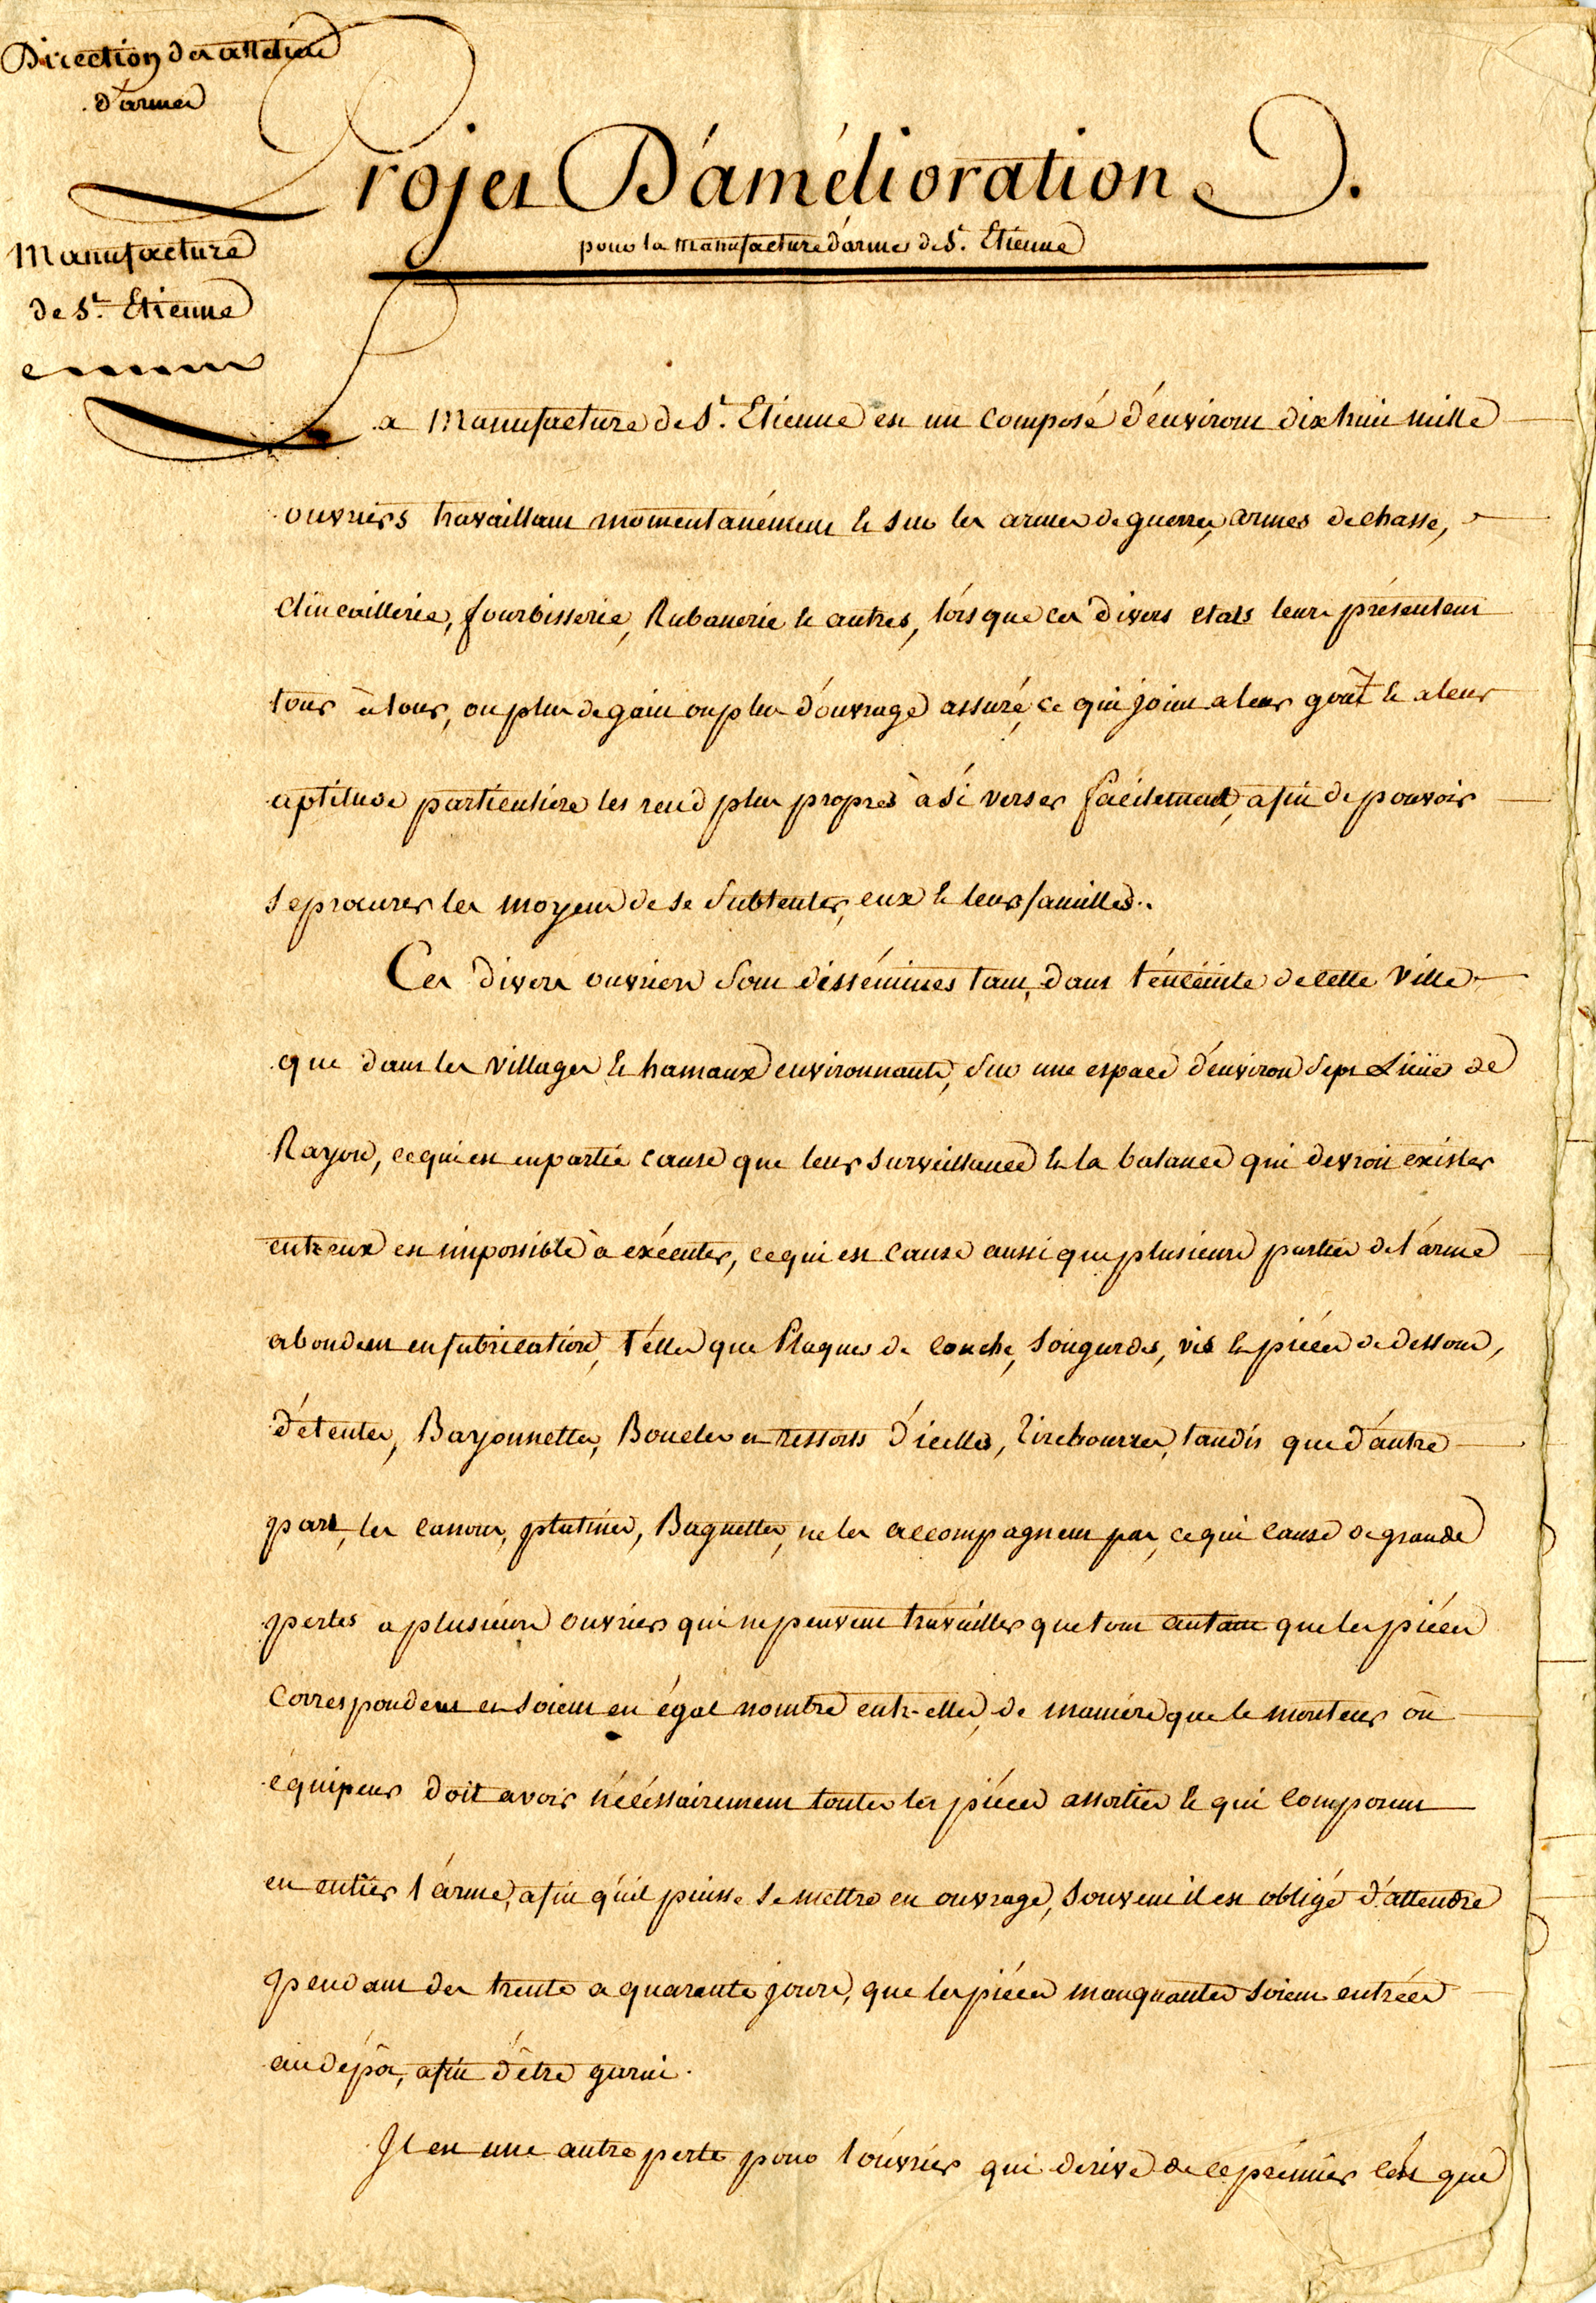 Direction des atteliers
d'armes
Projet D'amélioration.
pour la Manufacture d'armes de St. Etienne
Manufacture
de St. Etienne
La Manufacture de St. Etienne est un composé d'environs dix huit mille
ouvriers travaillant momentanément & sur les armes de guerre, armes de chasse,
Clincaillerie, fourbisserie, Rubanerie & autres, lorsque ces divers etats leur présentent
tour à tour, ou plus de gain ou plus d'ouvrage assuré, ce qui joint a leur goût & a leur
aptitude particulière les rend plus propres à s'i verser facilement, afin de pouvoir
se procurer les moyens de se substenter, eux & leurs familles.
Ces divers ouvriers sont disséminés tant dans l'énceinte de cette ville
que dans les villages & hamaux environnants, sur une espace d'environ sept Lieües de
Rayon, ce qui est en partie cause que leur surveillance & la balance qui devroit exister
entr'eux est impossible à exécuter, ce qui est cause aussi que plusieurs parties de l'arme
abondent en fabrication, télles que Plaques de couche, sougardes, vis & pièces de dessous,
détentes, Bayonnettes, Boucles et ressorts d'icelles, tirebourres, tandis que d'autre
part, les canons, platines, Baguettes, ne les accompagnent pas, ce qui cause de grande
pertes a plusieurs ouvriers qui ne peuvent travailler que tout autant que les pièces
Correspondent et soient en égal nombre entr-elles, de manière que le monteur où
équipeur doit avoir nécéssairement toutes les pièces assorties & qui composent
en entier l'arme, afin qu'il puisse se mettre en ouvrage, souvent il est obligé d'attendre
pendant des trente a quarante jours, que les pièces manquantes soient entrées
au dépôt, afin d'être garni.
Il est une autre perte pour l'ouvrier qui dérive de ce prémier c'est que